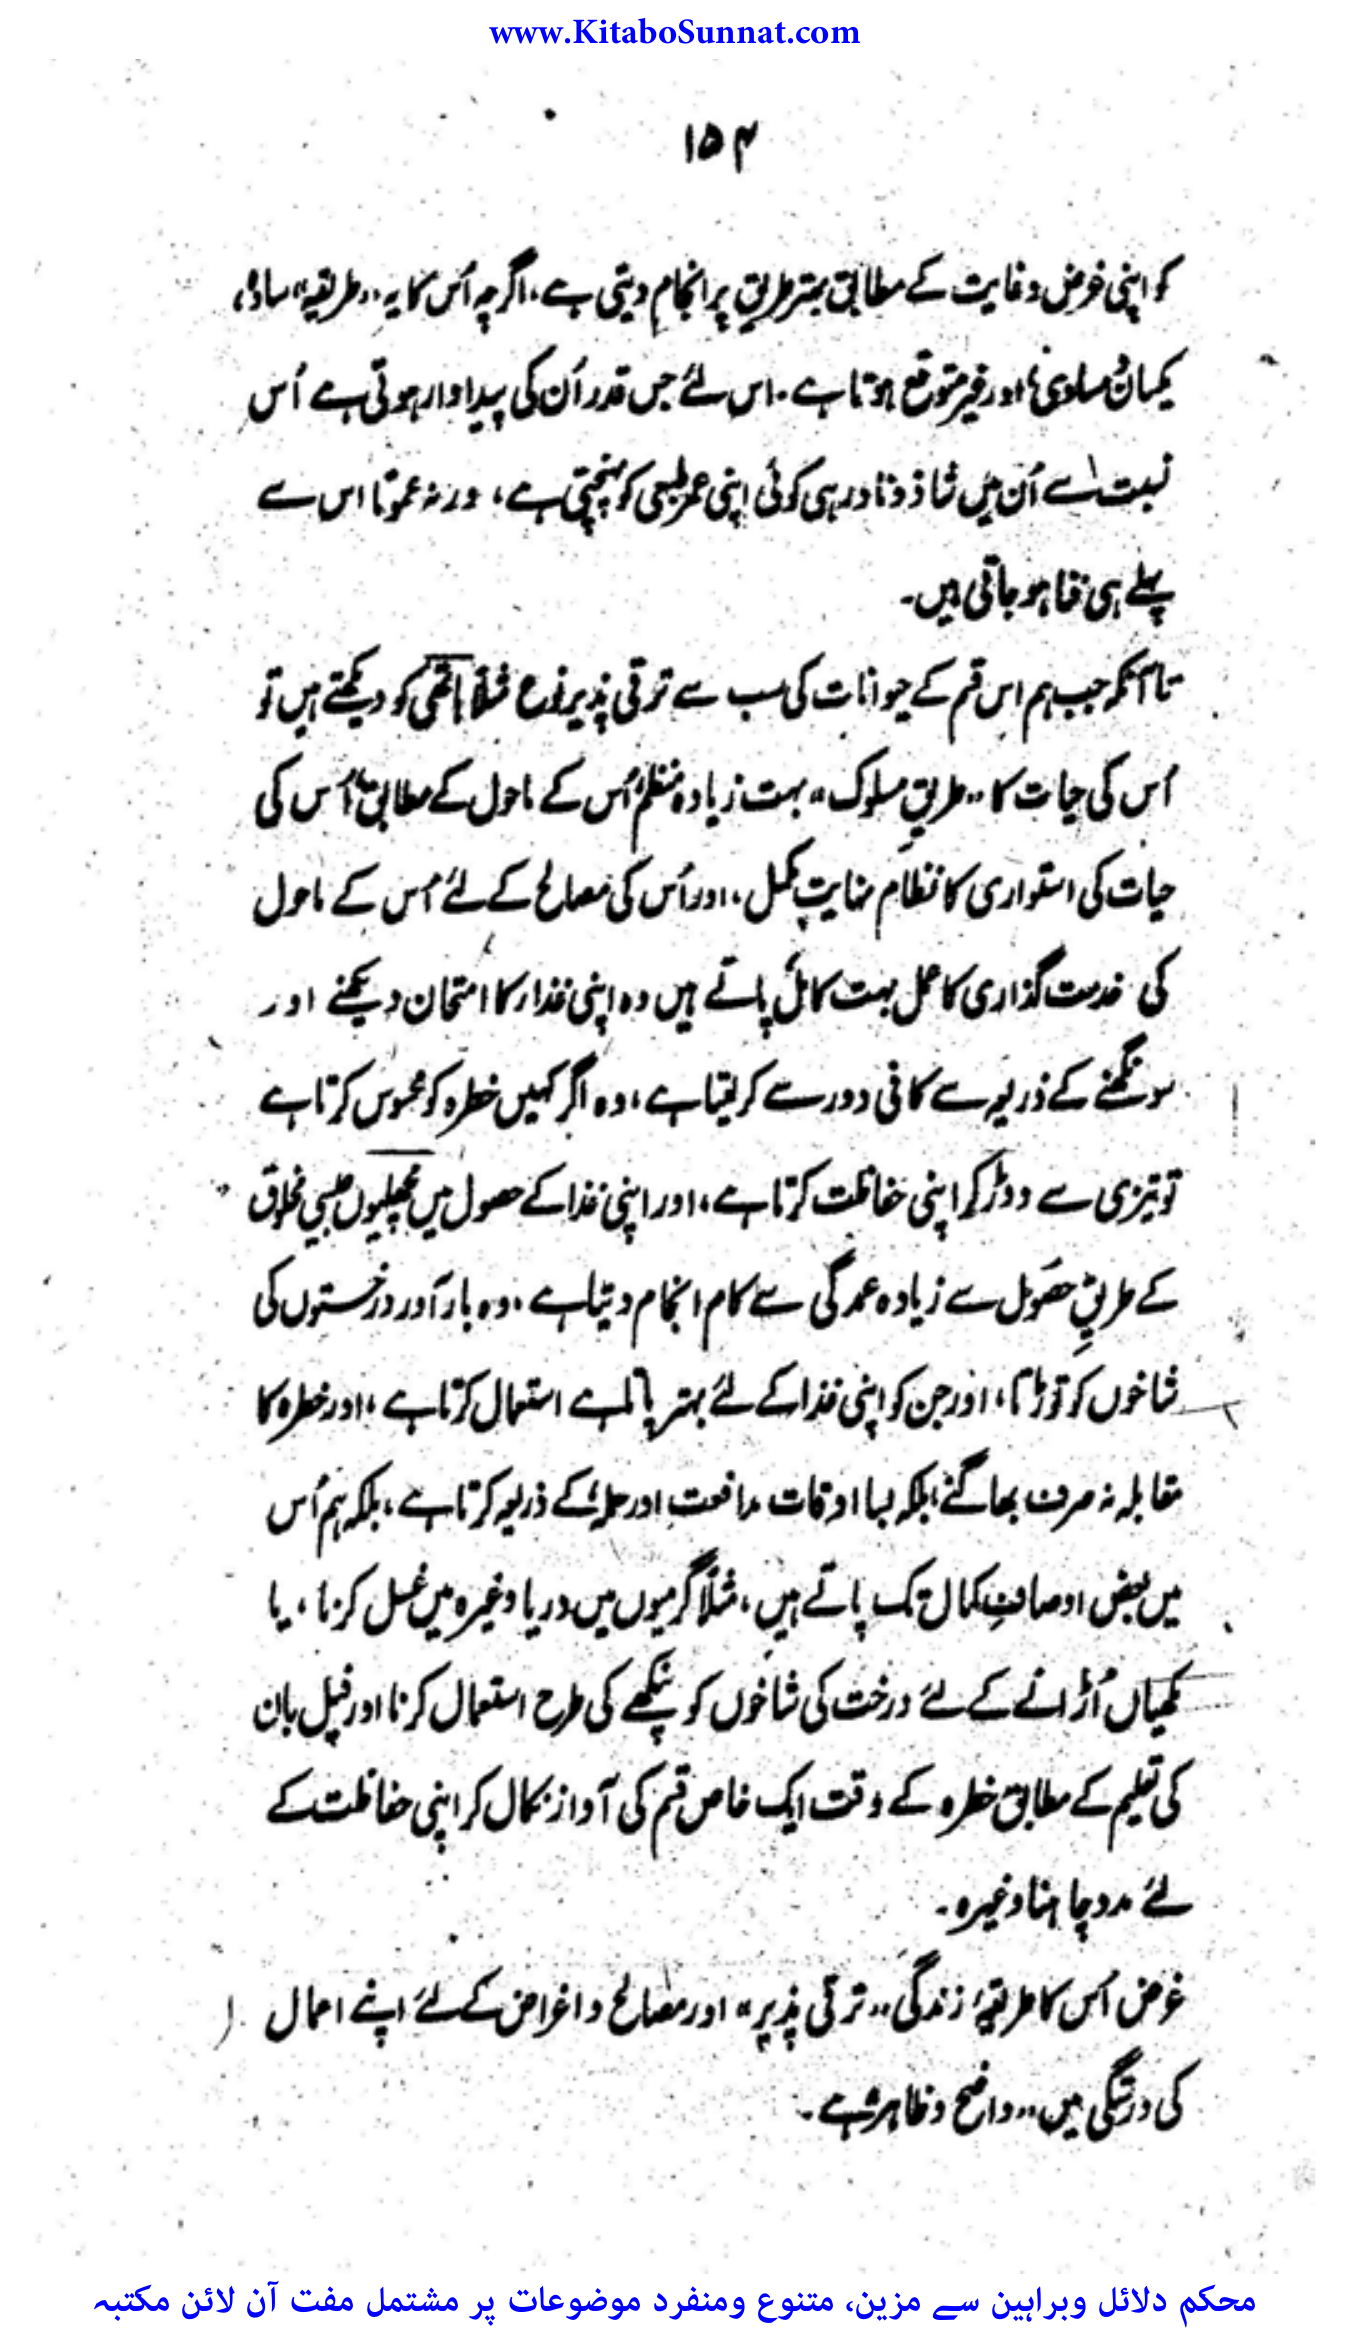 www.KitaboSunnat.com
۱۵۴
کو اپنی غرض و غایت کے مطابق بہتر طریق پر انجام دیتی ہے، اگرچہ اُس کا یہ "طریقہ" سادہ،
یکساں مساوی، اور غیر متوقع ہوتا ہے۔ اس لئے جس قدر اُن کی پیداوار ہوتی ہے اُس
نسبت سے اُن میں شاذ و نادر ہی کوئی اپنی عمر طبعی کو پہنچتی ہے، ورنہ عموماً اس سے
پہلے ہی فنا ہو جاتی ہیں۔
تا آنکہ جب ہم اس قسم کے حیوانات کی سب سے ترقی پذیر نوع مثلاً ہاتھی کو دیکھتے ہیں تو
اُس کی حیات کا "طریقِ سلوک" بہت زیادہ منظم اُس کے ماحول کے مطابق، اُس کی
حیات کی استواری کا نظام نہایت مکمل، اور اُس کی مصالح کے لئے اُس کے ماحول
کی خدمت گذاری کا عمل بہت کامل پاتے ہیں وہ اپنی غذار کا امتحان دیکھنے اور
سونگھنے کے ذریعہ سے کافی دور سے کر لیتا ہے، وہ اگر کہیں خطرہ کو محسوس کرتا ہے
تو تیزی سے دوڑ کر اپنی حفاظت کرتا ہے، اور اپنی غذا کے حصول میں مچھلیوں جیسی مخلوق
کے طریقِ حصول سے زیادہ عمدگی سے کام انجام دیتا ہے، وہ بار آور درختوں کی
شاخوں کو توڑتا، اور جن کو اپنی غذا کے لئے بہتر پاتا ہے استعمال کرتا ہے، اور خطرہ کا
مقابلہ نہ صرف بھاگنے بلکہ بسا اوقات مدافعت اور حملہ کے ذریعہ کرتا ہے، بلکہ ہم اُس
میں بعض اوصاف کمال تک پاتے ہیں، مثلاً گرمیوں میں دریا وغیرہ میں غسل کرنا، یا
مکھیاں اُڑانے کے لئے درخت کی شاخوں کو پنکھے کی طرح استعمال کرنا اور فیل بان
کی تعلیم کے مطابق خطرہ کے وقت ایک خاص قسم کی آواز نکال کر اپنی حفاظت کے
لئے مدد چاہنا وغیرہ۔
غرض اُس کا طریقۂ زندگی "ترقی پذیر" اور مصالح و اغراض کے لئے اپنے اعمال
کی درستگی میں "واضح و ظاہر" ہے۔
محکم دلائل وبراہین سے مزین، متنوع ومنفرد موضوعات پر مشتمل مفت آن لائن مکتبہ